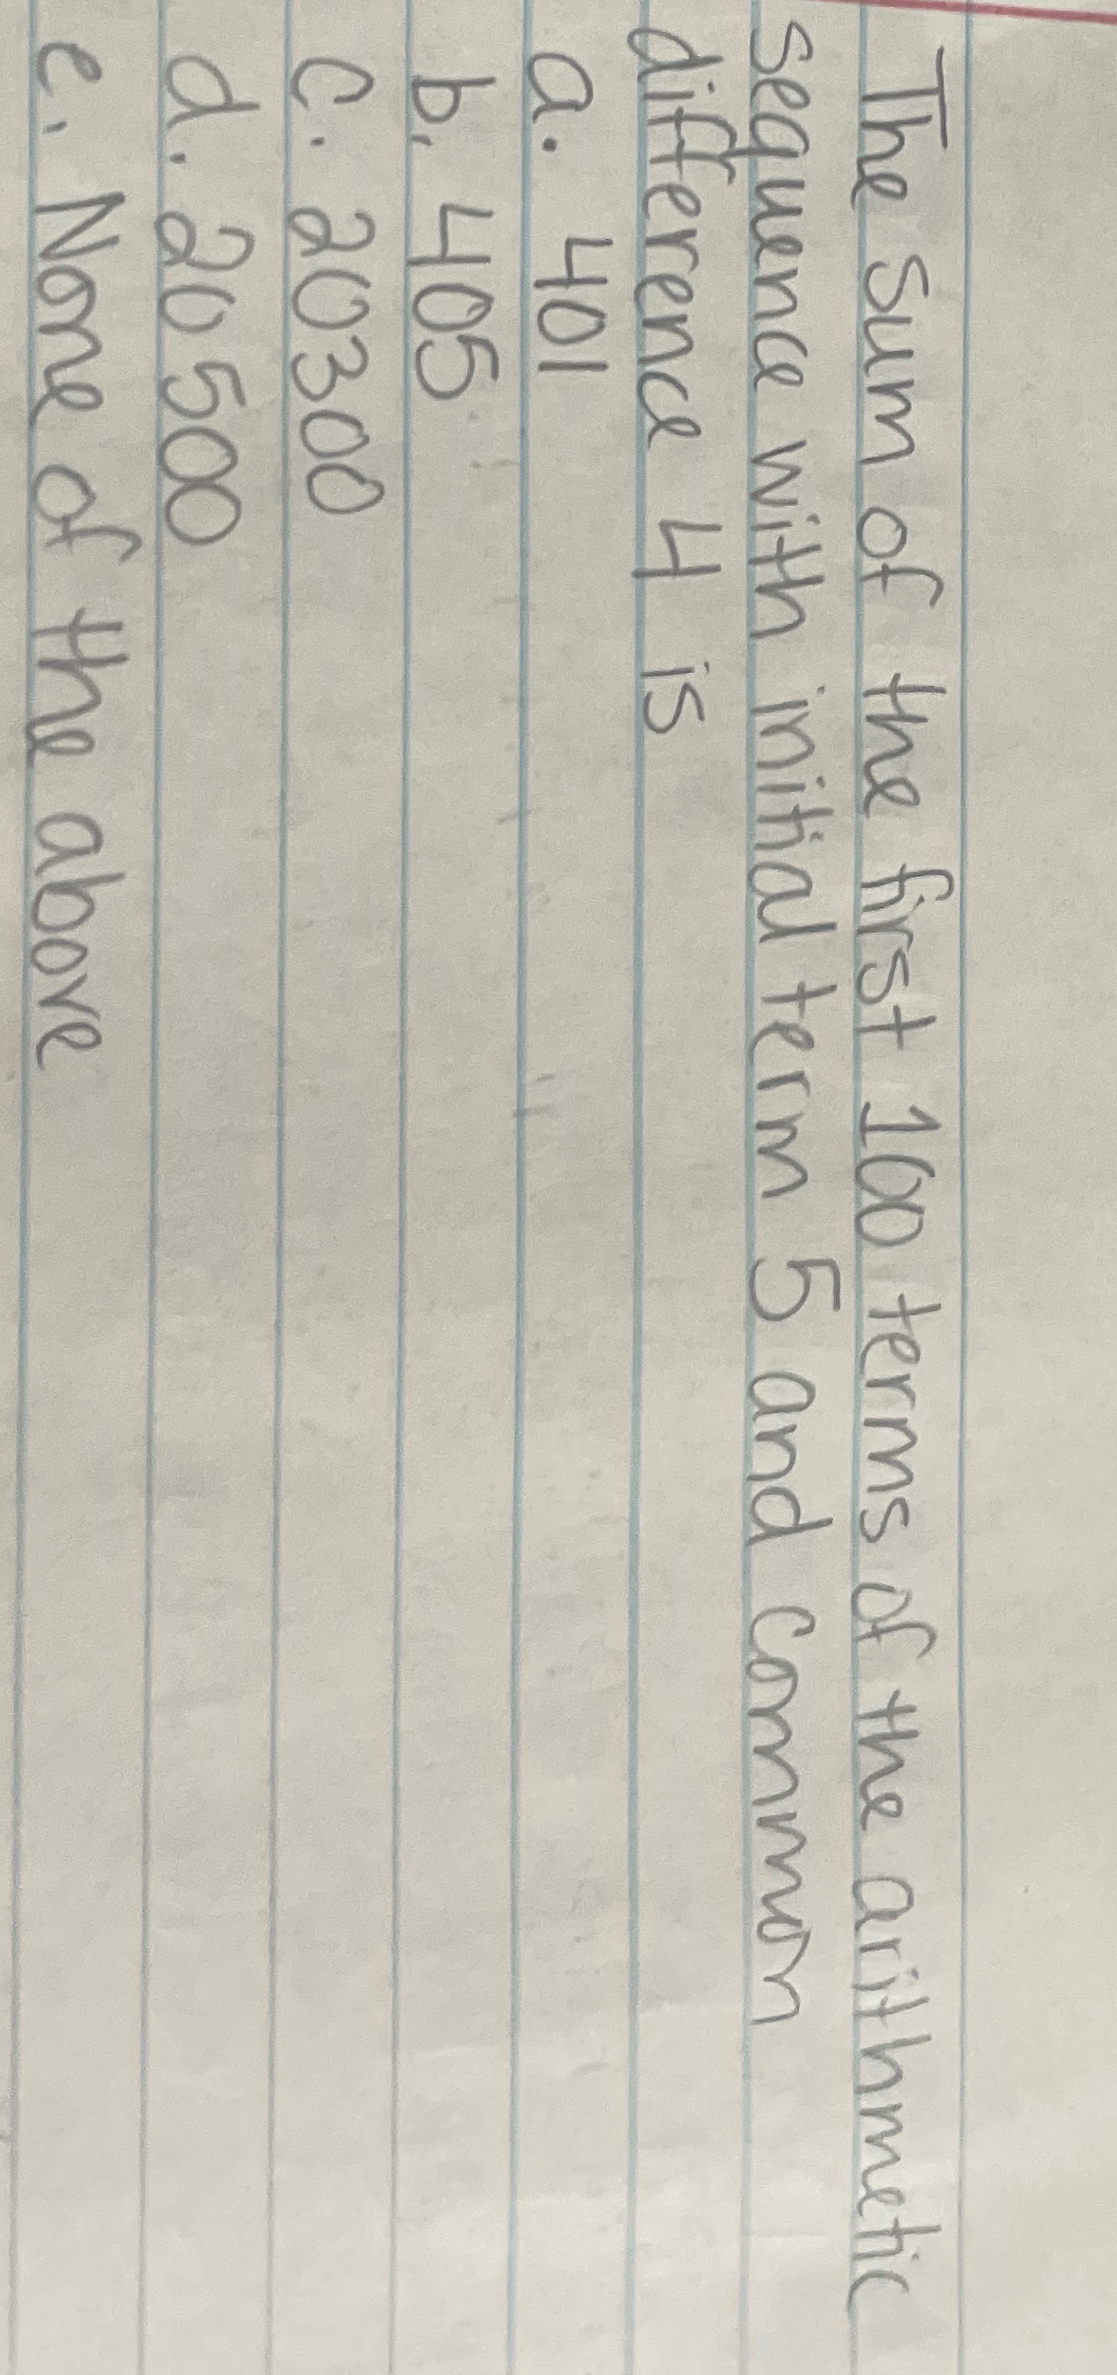 The sum of the first 100 terms of the arithmetic
sequence with initial term 5 and common
difference 4 is
a. 401
b. 405
c. 20300
d. 20500
e. None of the above